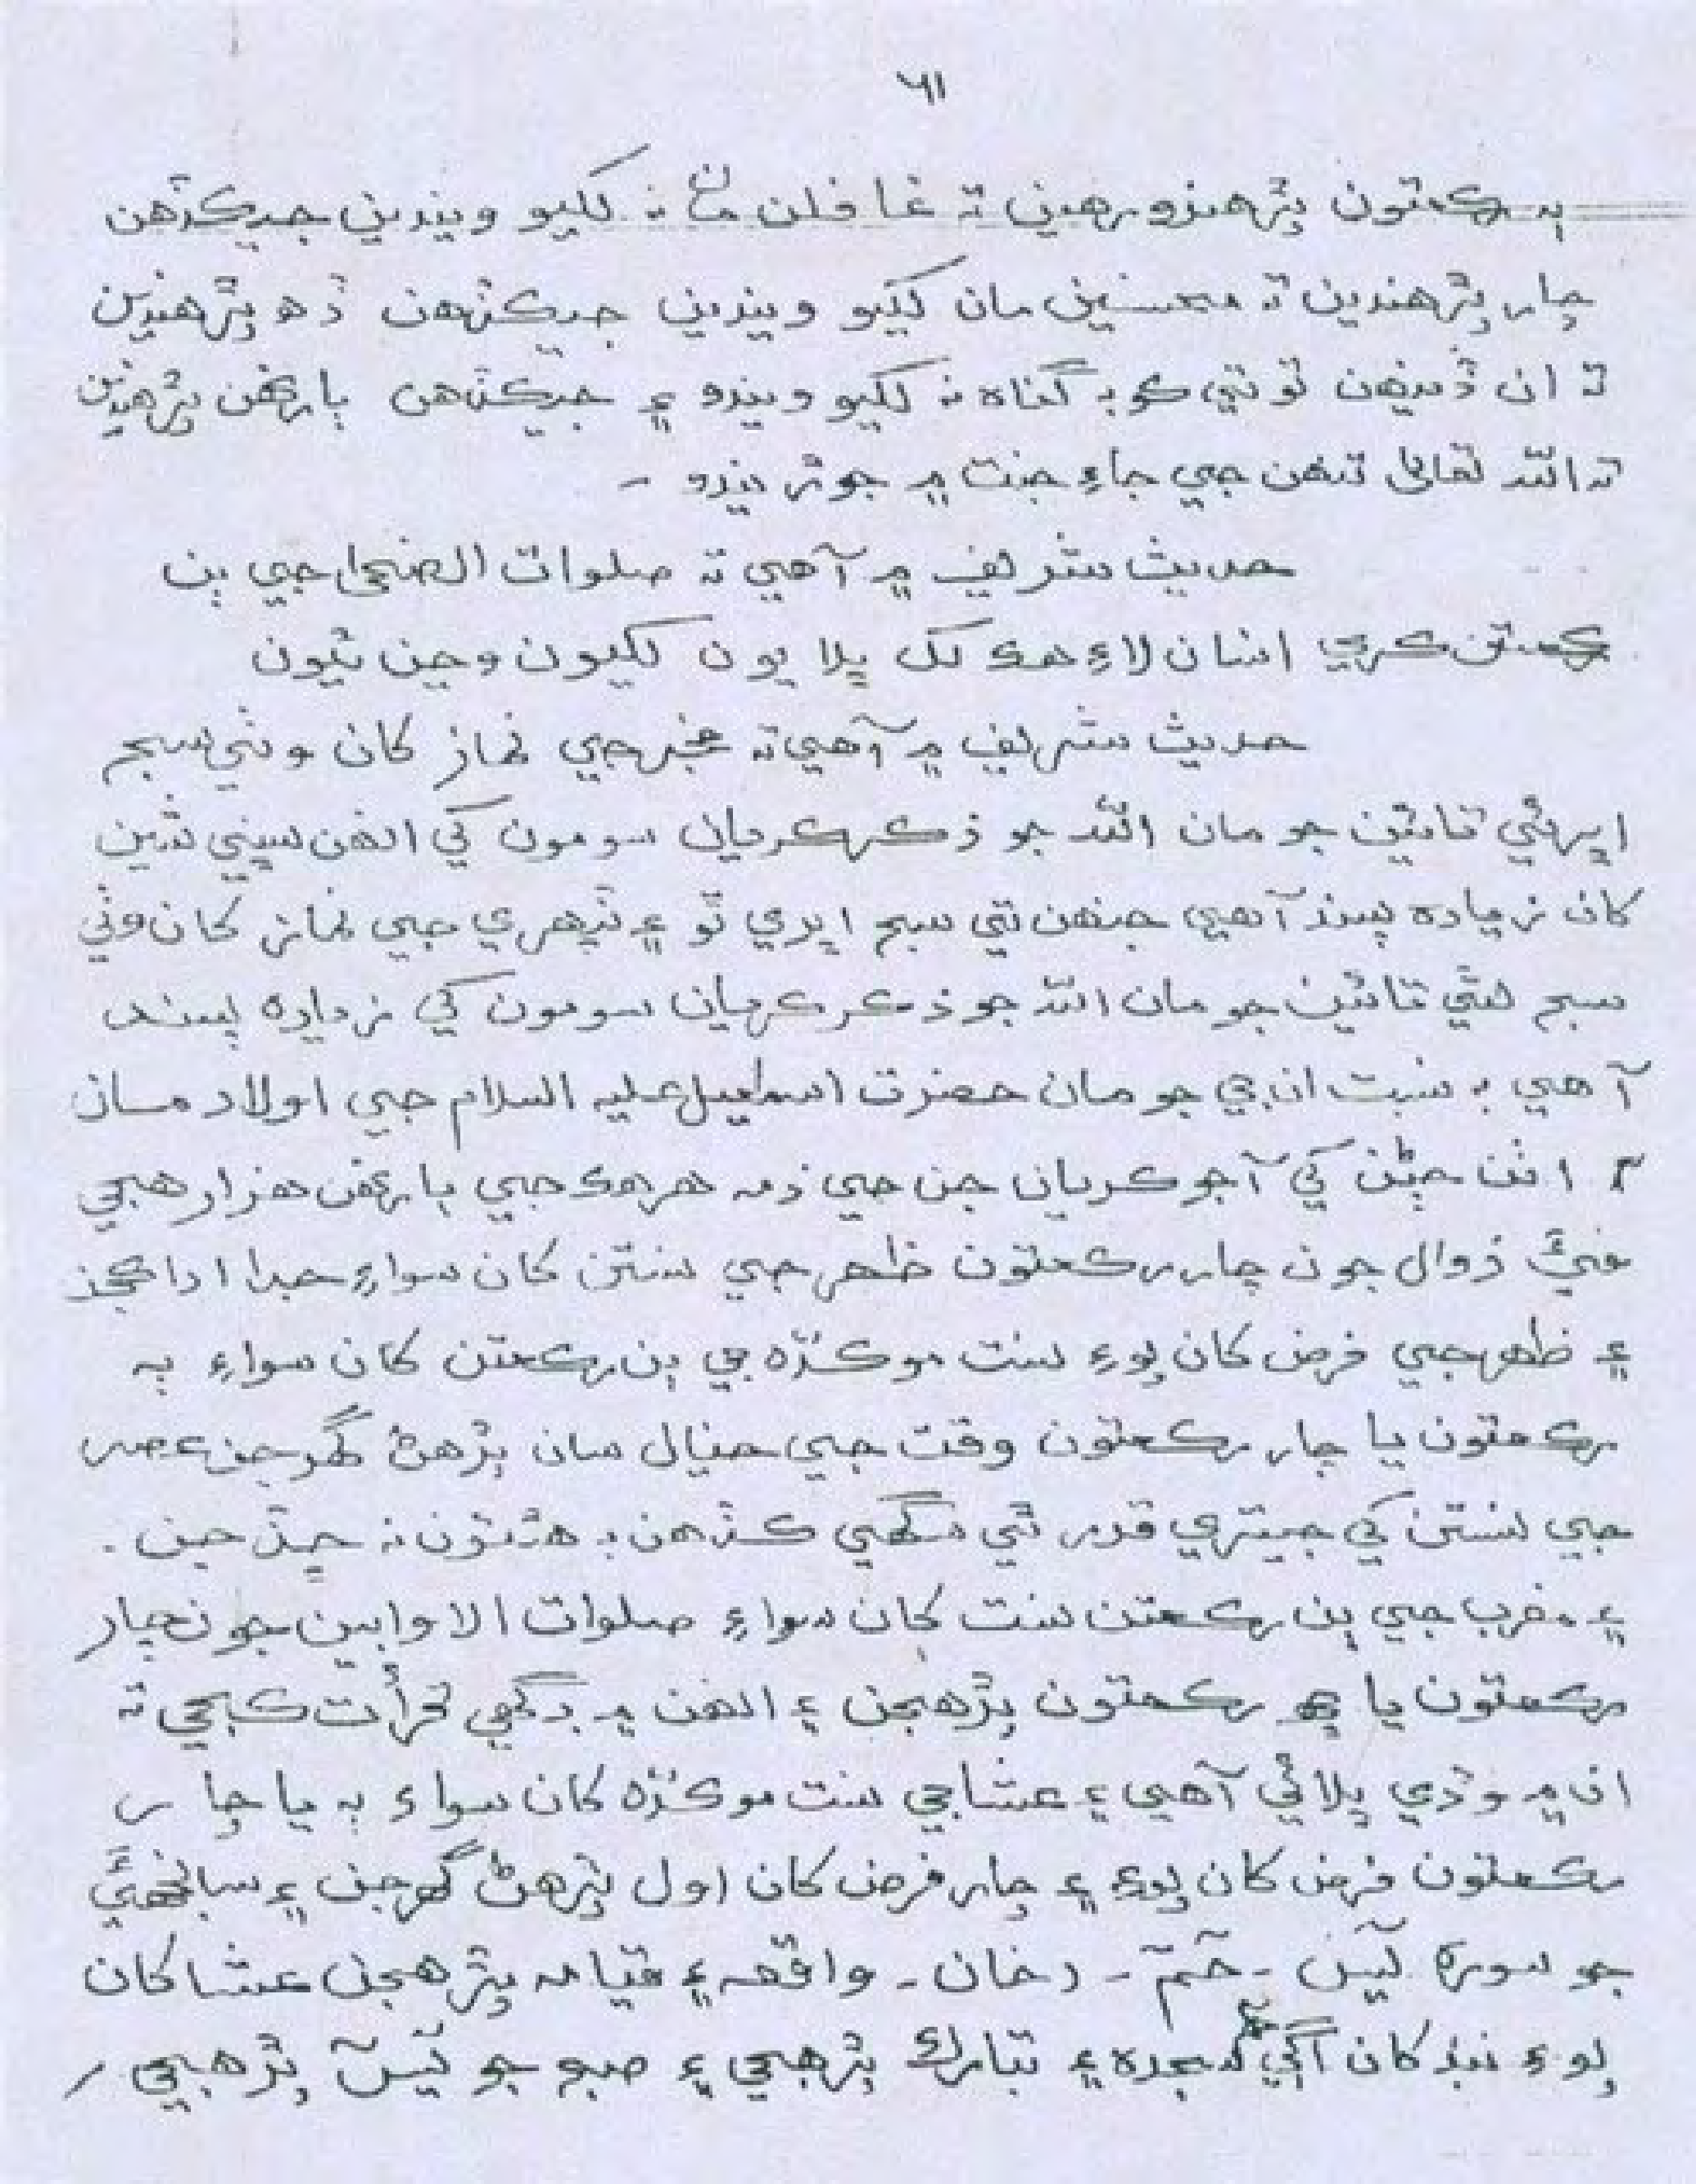 ٦١
ٻه رڪعتون پڙهندو رهين ته غافلن مان نه لکيو ويندين جيڪڏهن
چار پڙهندين ته محسنين مان لکيو ويندين جيڪڏهن ڏھ پڙهندين
ته ان ڏينهن تو تي ڪو به گناه نه لکيو ويندو ۽ جيڪڏهن ٻارهن پڙهندين
ته الله تعالیٰ تنهن جي جاءِ جنت ۾ جوڙيندو -
حديث شريف ۾ آهي ته صلوات الضحیٰ جي ٻن
رڪعتن ڪري انسان لاءِ هڪ لک ڀلايون لکيون وڃن ٿيون
حديث شريف ۾ آهي ته فجر جي نماز کان وٺي سج
اڀرڻ تائين جو مان الله جو ذڪر ڪريان سو مون کي انهن سڀني شين
کان زياده پسند آهي جنهن تي سج اڀري ٿو ۽ ٽيپهري جي نماز کان وٺي
سج لهڻ تائين جو مان الله جو ذڪر ڪريان سو مون کي زياده پسند
آهي به نسبت ان جي جو مان حضرت اسماعيل عليه السلام جي اولاد مان
اٺن ڄڻن کي آجو ڪريان جن جي ذمه هر هڪ جي ٻارهن هزار هجي
في زوال جون چار رڪعتون ظهر جي سنتن کان سواءِ جدا ادا ڪجن
۽ ظهر جي فرض کان پوءِ سنت موڪده جي ٻن رڪعتن کان سواءِ ٻه
رڪعتون يا چار رڪعتون وقت جي خيال سان پڙهڻ گهرجن عصر
جي سنتن کي جيتري قدر ٿي سگهي ڪڏهن به هٿئون نه ڇڏجن .
۽ مغرب جي ٻن رڪعتن سنت کان سواءِ صلوات الاوابين جون چار
رڪعتون يا ڇھ رڪعتون پڙهجن ۽ انهن ۾ ڊگهي قرأت ڪبجي ته
ان ۾ وڏي ڀلائي آهي ۽ عشا جي سنت موڪده کان سواءِ ٻه يا چار
رڪعتون فرض کان پوءِ ۽ چار فرض کان اول پڙهڻ گهرجن ۽ سانجهي
جو سورة يٰسٓ - حٰمٓ - دخان - واقعه ۽ قيامه پڙهجن عشا کان
پوءِ ننڊ کان اڳي سجده ۽ تبارڪ پڙهجي ۽ صبح جو يٰسٓ پڙهجي